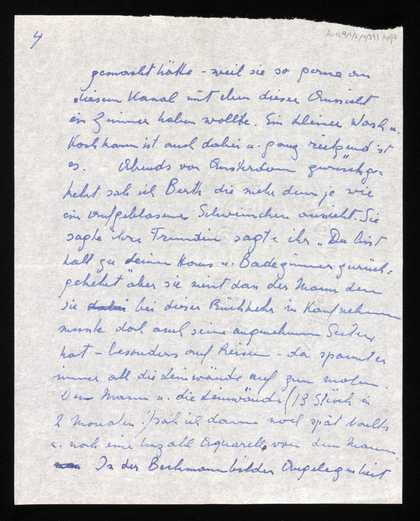 4
gemacht hätte - weil sie so gerne an
diesem Kanal mit eben dieser Aussicht
ein Zimmer haben wollte. Ein kleiner Wasch u.
Kochraum ist auch dabei u. ganz reizend ist
es. Abends von Amsterdam zurückge-
kehrt sah ich Berth die mehr denn je wie
ein aufgeblasenes Schweinchen aussieht. Sie
sagte ihre Freundin sagte ihr „Du bist
halt zu deinem Haus u. Badezimmer zurück-
gekehrt" aber sie meint das der Mann den
sie bei dieser Rückkehr in Kauf nehmen
musste doch auch seine angenehmen Seiten
hat - besonders auf Reisen - da spannt er
immer all die Leinwände auf zum malen.
Den Mann u. die Leinwände (13 Stück in
2 Monaten) sah ich dann noch spät
u. noch eine Anzahl Aquarelle von dem Mann.
In der Beckmannbilder Angelegenheit